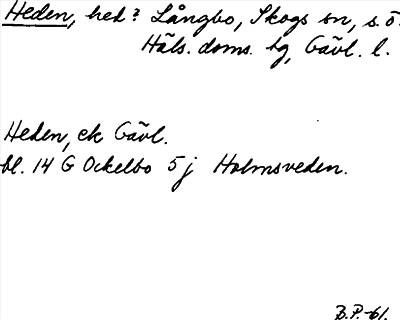 Heden, hed? Långbo, Skogs sn, s. ö.
Häls. doms. hg, Gävl. l.
Heden, ek Gävl.
bl. 14 G Ockelbo 5 j Holmsveden.
B.P.-61.